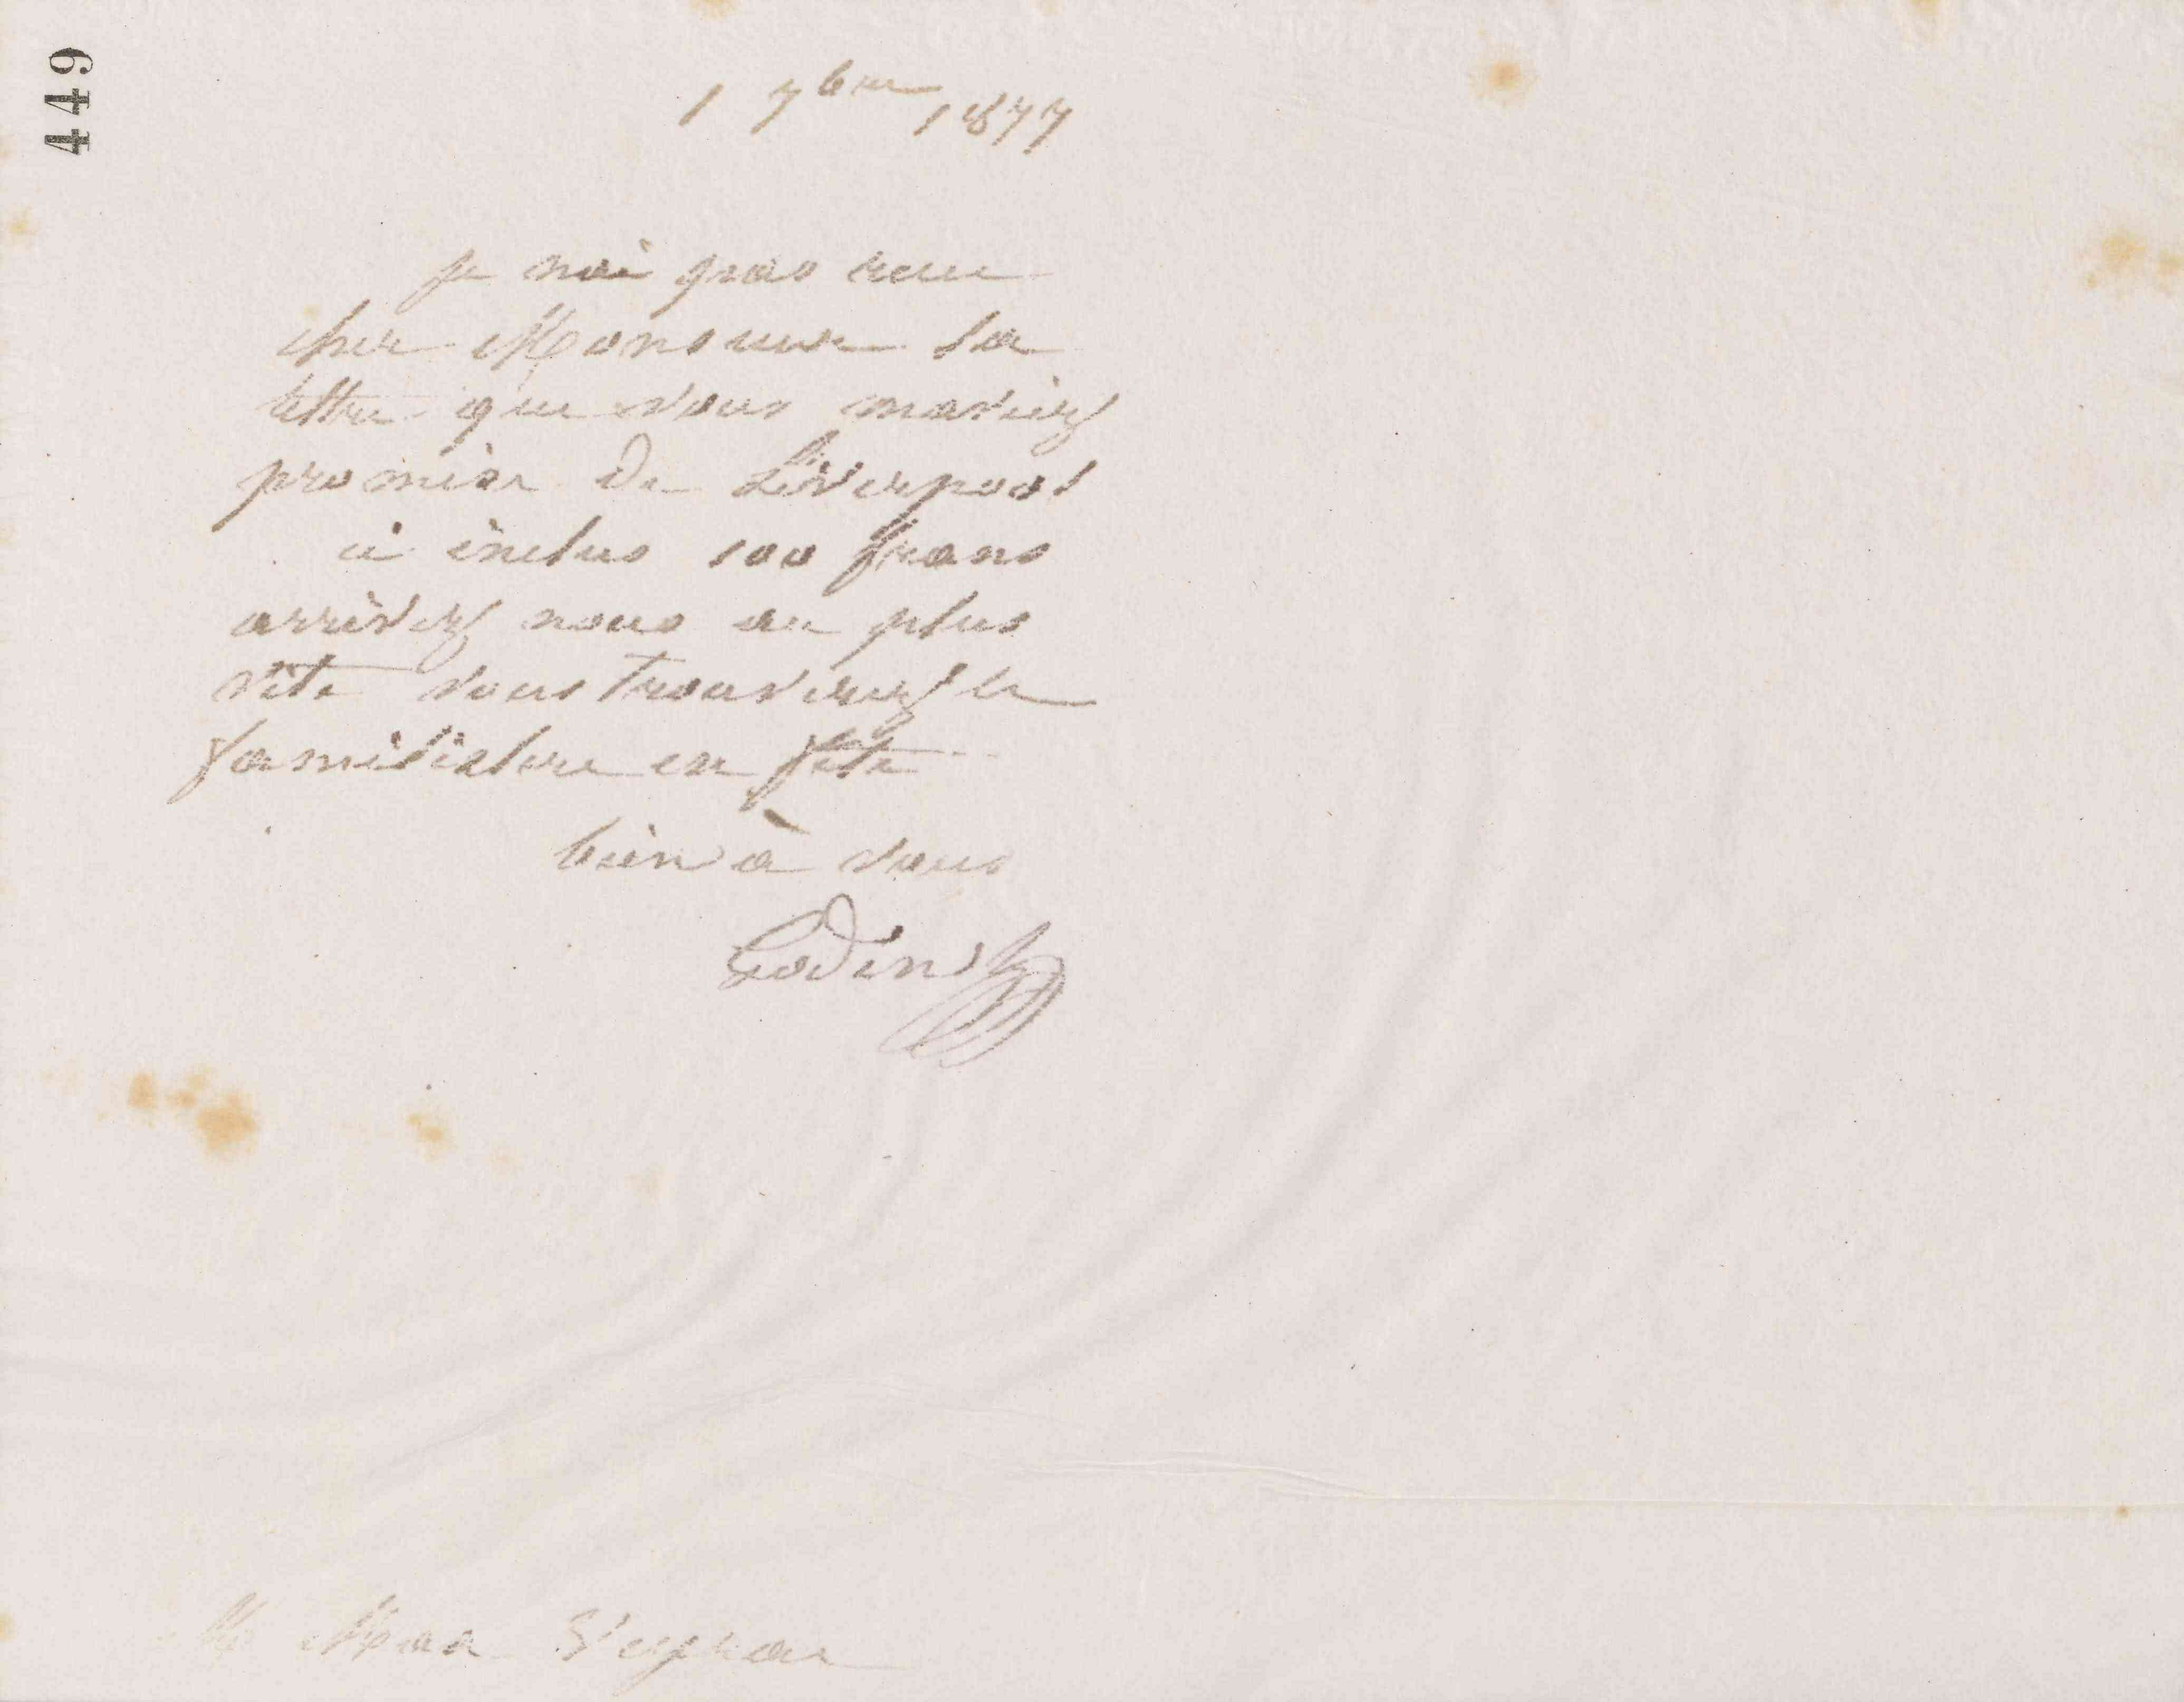 449
1 7bre 1877
je nai pas recu
cher Monsieur la
lettre que vous maviez
promise de Liverpool
ci inclus 100 frans
arrivez nous au plus
vite vous trouverez le
familistere en fête
bien à vous
Godin
M